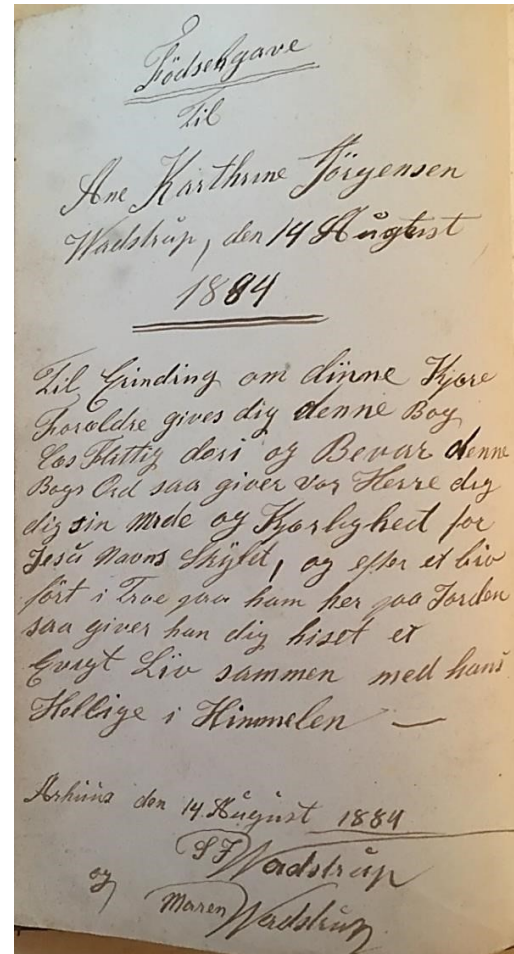 Födselsgave
Til
Ane Karthrine Jörgensen
Wadstrup, den 14 August
1884
Til Erinding om dinne Kjære
Forældre gives dig denne Bog
Læs Flittig deri og Bevar denne
Bogs Ord saa giver vor Herre dig
dig sin Nrde og Kjærlighed for
Jesu Navns Skyld, og efter et liv
fört i Troe paa ham her paa Jorden
saa giver han dig hiset et
Evigt Liv sammen med hans
Hellige i Himmelen —
Arhuus den 14 August 1884
S J Wadstrup
og Maren Wadstrup